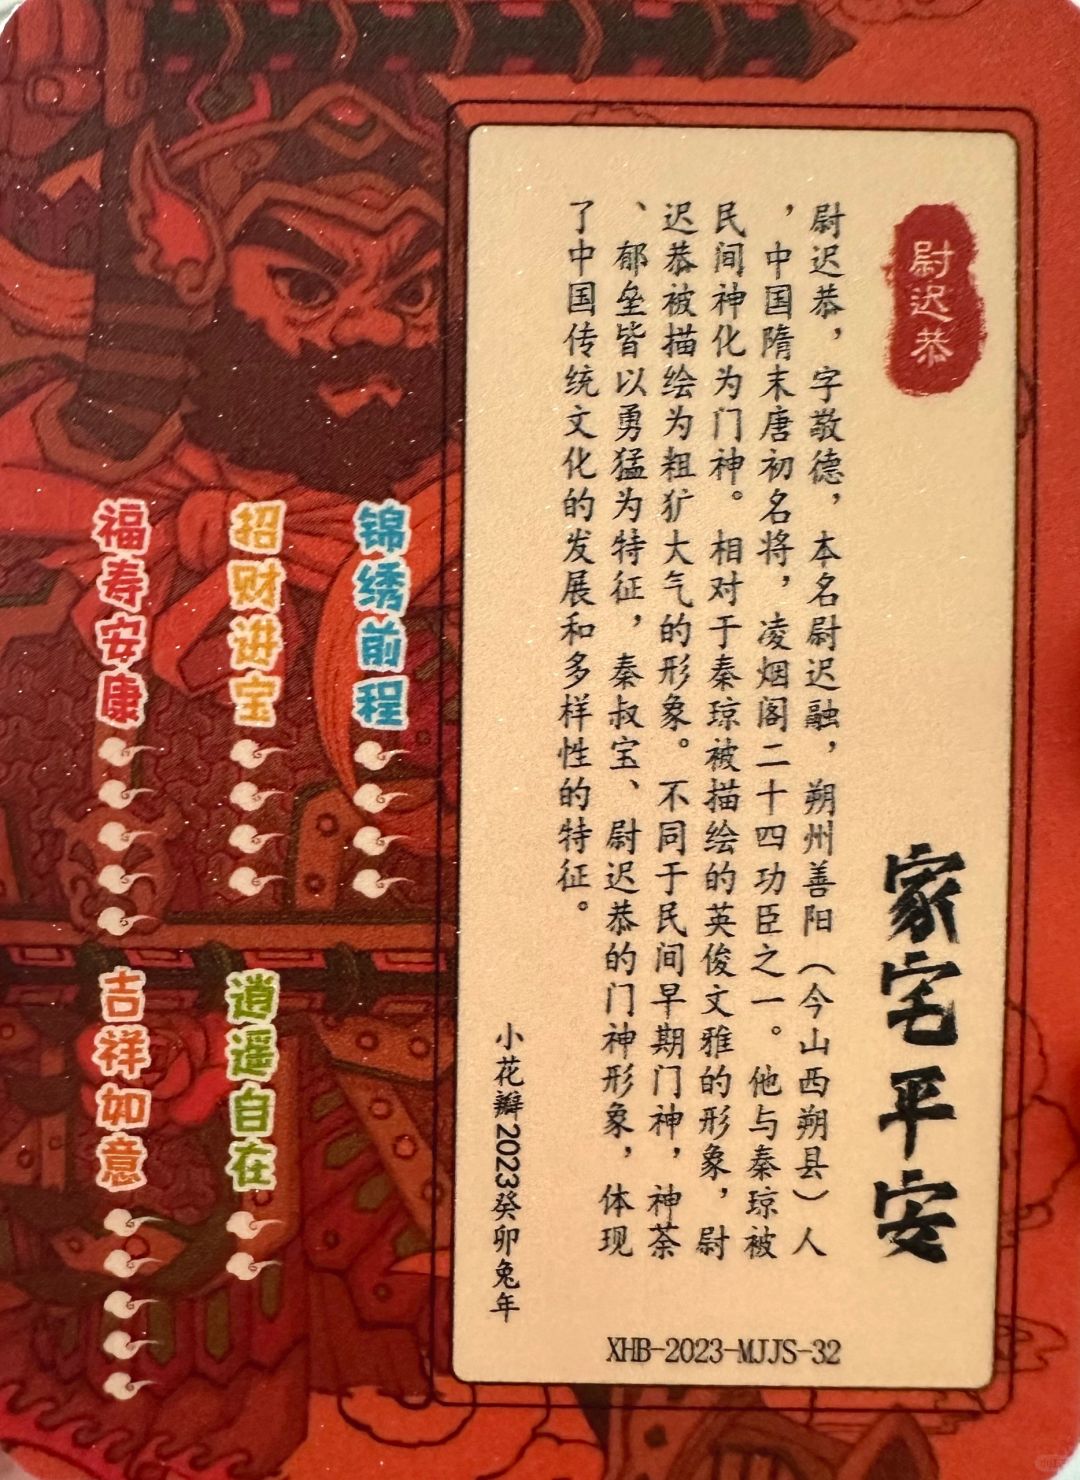 尉迟恭
家宅平安
尉迟恭，字敬德，本名尉迟融，朔州善阳（今山西朔县）人
，中国隋末唐初名将，凌烟阁二十四功臣之一。他与秦琼被
民间神化为门神。相对于秦琼被描绘的英俊文雅的形象，尉
迟恭被描绘为粗犷大气的形象。不同于民间早期门神，神荼
、郁垒皆以勇猛为特征，秦叔宝、尉迟恭的门神形象，体现
了中国传统文化的发展和多样性的特征。
小花瓣2023癸卯兔年
XHB-2023-MJJS-32
锦绣前程
招财进宝
逍遥自在
福寿安康
吉祥如意